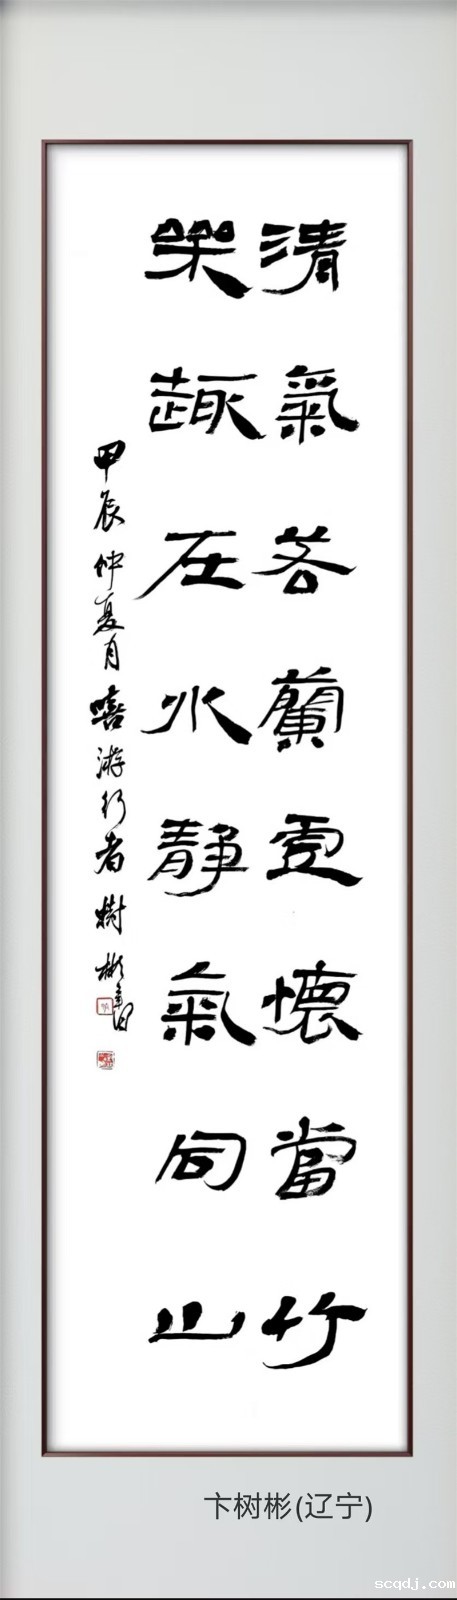 清氣若蘭虛懷當竹
樂趣在水靜氣同山
甲辰仲夏月嘻游行者樹彬書
卞树彬(辽宁)
scqdj.com